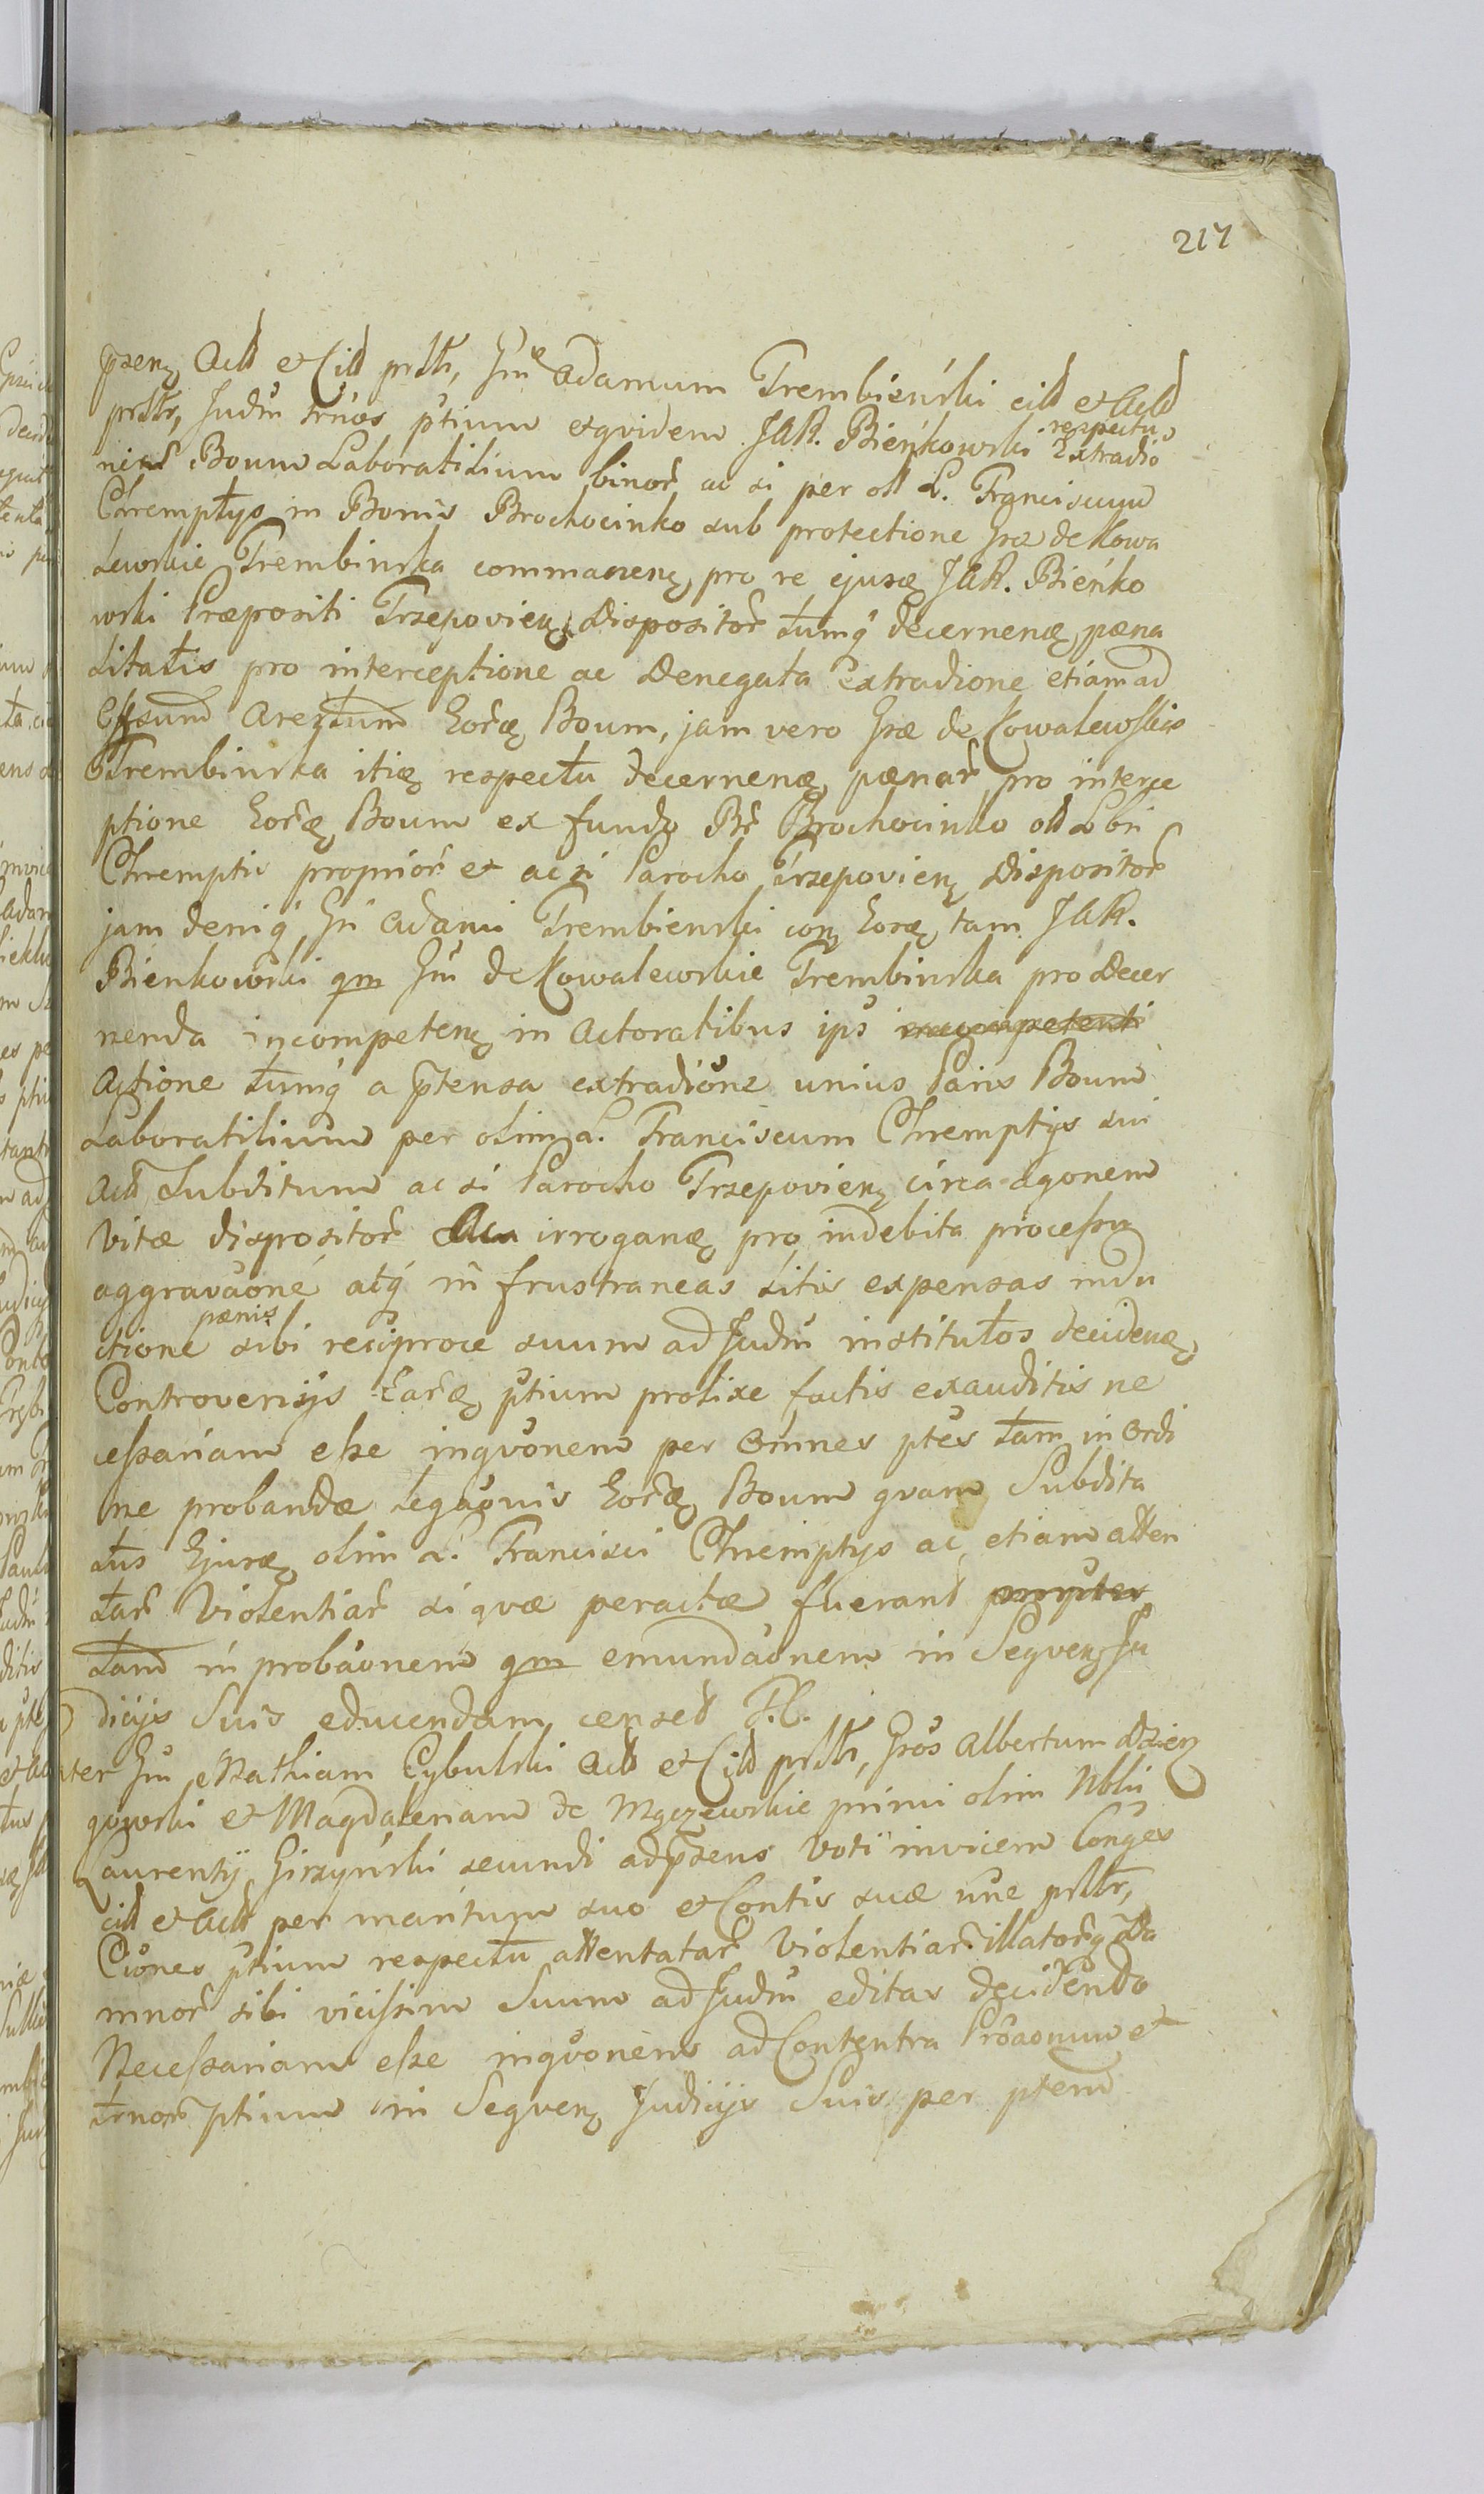 217
p̃senę Actt et Citt prltr, Gm̃ Adamum Trembiénski citt et Actt
prltr, Judm̃ trños ptium etqvidem JAR. Bieńkowski respectu Extradio
nis Boum Laboratilium binor̃ ac si per oll L. Franciscum
Chremptys in Bonis Brochocinko sub protectione Gsæ de Kowa
lewskie Trembinska commanenę pro re ejusę JAR. Bieńko
wski Præpositi Trzepovienę Dispositor̃ tumq̃ decernenę pæna
litatis pro interceptione ac Denegata extradione etiam ad
Effsum Arestum Eor̃ę Boum, jam vero Gsæ de Kowalewskie
Trembinska itię respectu decernenę pænar̃ pro interce
ptione Eor̃ę Boum ex fundo Br̃ Brochocinko oll Lbri
Chremptis proprior̃ et ac si Parocho Trzepovienę Dispositor̃
jam deniq̃ Gñ Adami Trembienski conę Eosę tam JAR.
Bienkowski qm Gm̃ de Kowalewskie Trembinska pro Decer
nenda incompetenę in Actoratibus ips̃ incompetenti
Actione tumq̃ a p̃tensa extradione unius Paris Boum
Laboratilium per olim L. Franciscum Chremptys sui
Actt Subditum ac si Parocho Trzepovienę circa agonem
Vitæ dispositor̃ Ac irroganę pro indebita processu
aggravãone atq̃ in frustraneas litis expensas indu
ctione pænis sibi reciproce suum ad Judm̃ institutos decidenę
Controversijs Ear̃ę ptium prolixe factis exauditis ne
cessariam esse inqvõnem per Omnes ptes tam in Ordi
ne probandæ legaõnis Eor̃ę Boum qvam Subdita
tus Ejusę olim L. Francisci Chremptys ac etiam atten
tar̃ Violentiar̃ si qvæ peractæ fuerant
tam in probãonem qm emundãonem in Seqvenę Ju
dicijs Suis educendam censet P.C.
Inter Gm̃ Mathiam Cybulski Actt et Citt prltr, Gsõs Albertum Dzięn
gowski et Magdalenam de Mgczewskie primi olim Nblis
Laurentij Girzyński secundi ad p̃sens Voti invicem Conges
citt et Actt per maritum suo et Contis suæ nñe prltr,
Ciõnes ptium respectu attentatar̃ Violentiar̃ illatorq̃ Da
mnor̃ sibi vicissim Suum ad Judm̃ editas decidendo
Necessariam esse inqvõnem ad Contentra Prõaonum et
trnor̃ ptium in Seqvenę Judicijs Suis per ptem